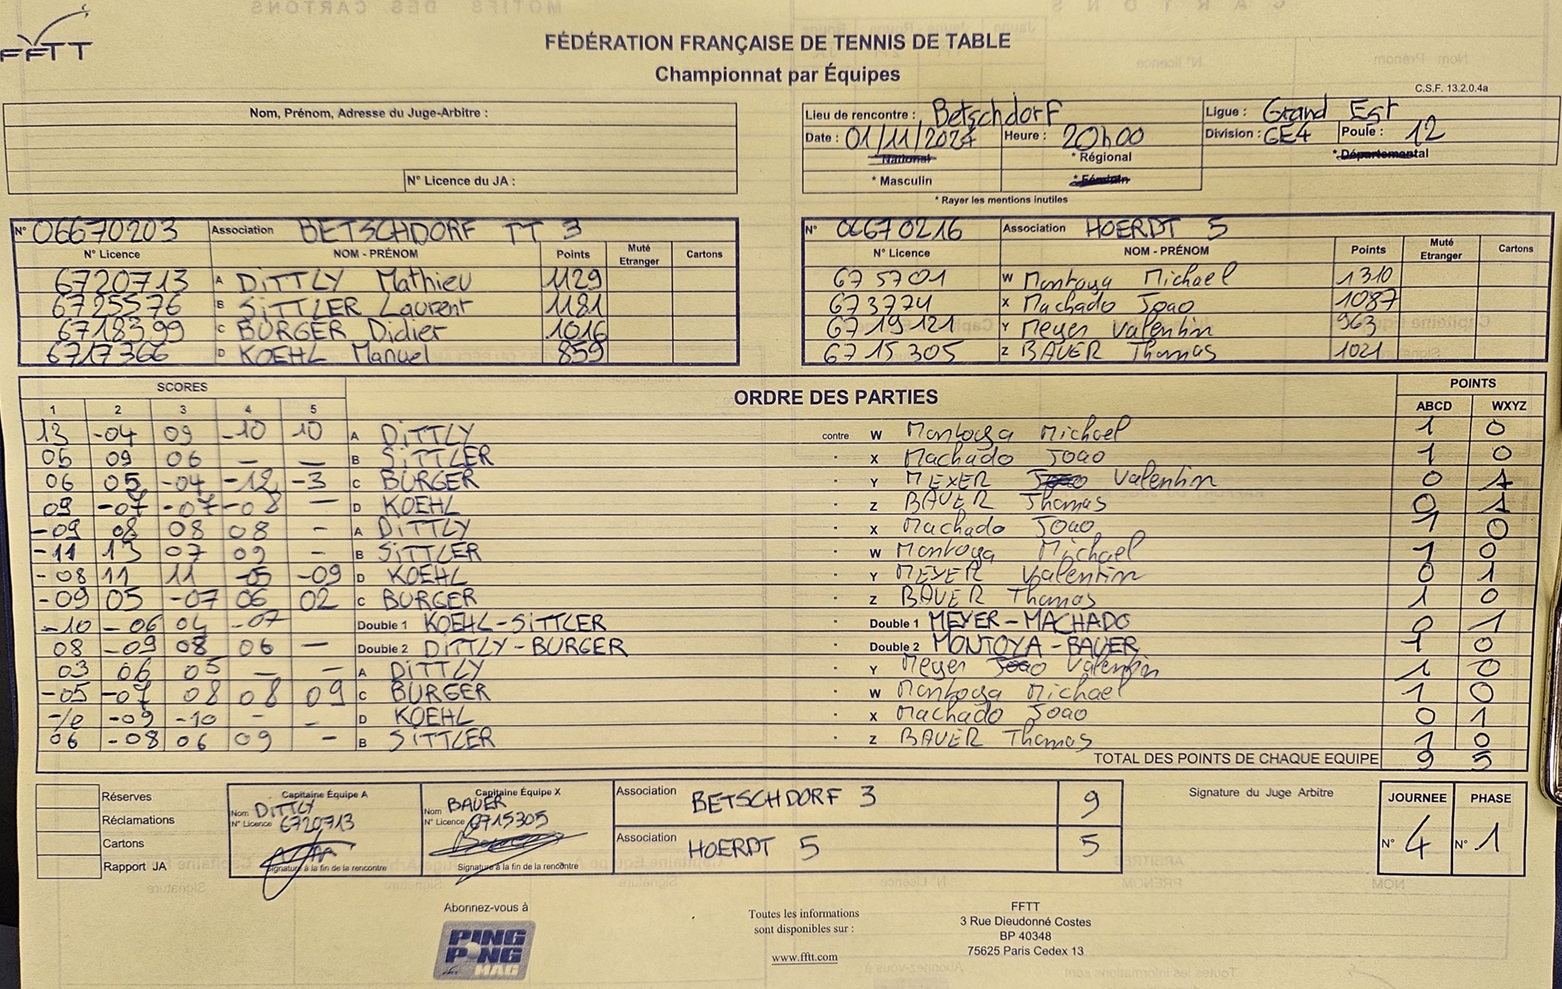 FFTT
FÉDÉRATION FRANÇAISE DE TENNIS DE TABLE
Championnat par Équipes
C.S.F. 13.2.0.4a
Nom, Prénom, Adresse du Juge-Arbitre :
N° Licence du JA :
Lieu de rencontre : Betschdorf Ligue : Grand Est
Date : 01/11/2024 Heure : 20h00 Division : GE4 Poule : 12
* National * Régional * Départemental
* Masculin * Féminin
* Rayer les mentions inutiles
N° 06670203 Association BETSCHDORF TT 3
N° Licence NOM - PRÉNOM Points Muté Etranger Cartons
6720713 A DITTLY Mathieu 1129
6725576 B SITTLER Laurent 1181
6718399 C BURGER Didier 1016
6717366 D KOEHL Manuel 859
N° 06670216 Association HOERDT 5
N° Licence NOM - PRÉNOM Points Muté Etranger Cartons
675701 W Montoya Michael 1310
673774 X Machado Joao 1087
6719121 Y Meyer Valentin 963
6715305 Z BAUER Thomas 1021
SCORES ORDRE DES PARTIES POINTS
1 2 3 4 5 ABCD WXYZ
13 -04 09 -10 10 A DITTLY contre W Montoya Michael 1 0
05 09 06 — — B SITTLER X Machado Joao 1 0
06 05 -04 -12 -3 C BURGER Y MEYER Valentin 0 1
09 -07 -07 -08 — D KOEHL Z BAUER Thomas 0 1
-09 08 08 08 - A DITTLY X Machado Joao 1 0
-11 13 07 09 - B SITTLER W Montoya Michael 1 0
-08 11 11 -05 -09 D KOEHL Y MEYER Valentin 0 1
-09 05 -07 06 02 C BURGER Z BAUER Thomas 1 0
-10 -06 04 -07 Double 1 KOEHL-SITTLER Double 1 MEYER-MACHADO 0 1
08 -09 08 06 — Double 2 DITTLY-BURGER Double 2 MONTOYA-BAUER 1 0
03 06 05 — - A DITTLY Y Meyer Joao Valentin 1 0
-05 -07 08 08 09 C BURGER W Montoya Michael 1 0
-10 -09 -10 - - D KOEHL X Machado Joao 0 1
06 -08 06 09 - B SITTLER Z BAUER Thomas 1 0
TOTAL DES POINTS DE CHAQUE EQUIPE 9 5
Réserves
Réclamations
Cartons
Rapport JA
Capitaine Équipe A
Nom DITTLY
N° Licence 6720713
Signature à la fin de la rencontre
Capitaine Équipe X
Nom BAUER
N° Licence 6715305
Signature à la fin de la rencontre
Association BETSCHDORF 3 9
Association HOERDT 5 5
Signature du Juge Arbitre
JOURNEE PHASE
N° 4 N° 1
Abonnez-vous à
PING PONG MAG
Toutes les informations
sont disponibles sur :
www.fftt.com
FFTT
3 Rue Dieudonné Costes
BP 40348
75625 Paris Cedex 13